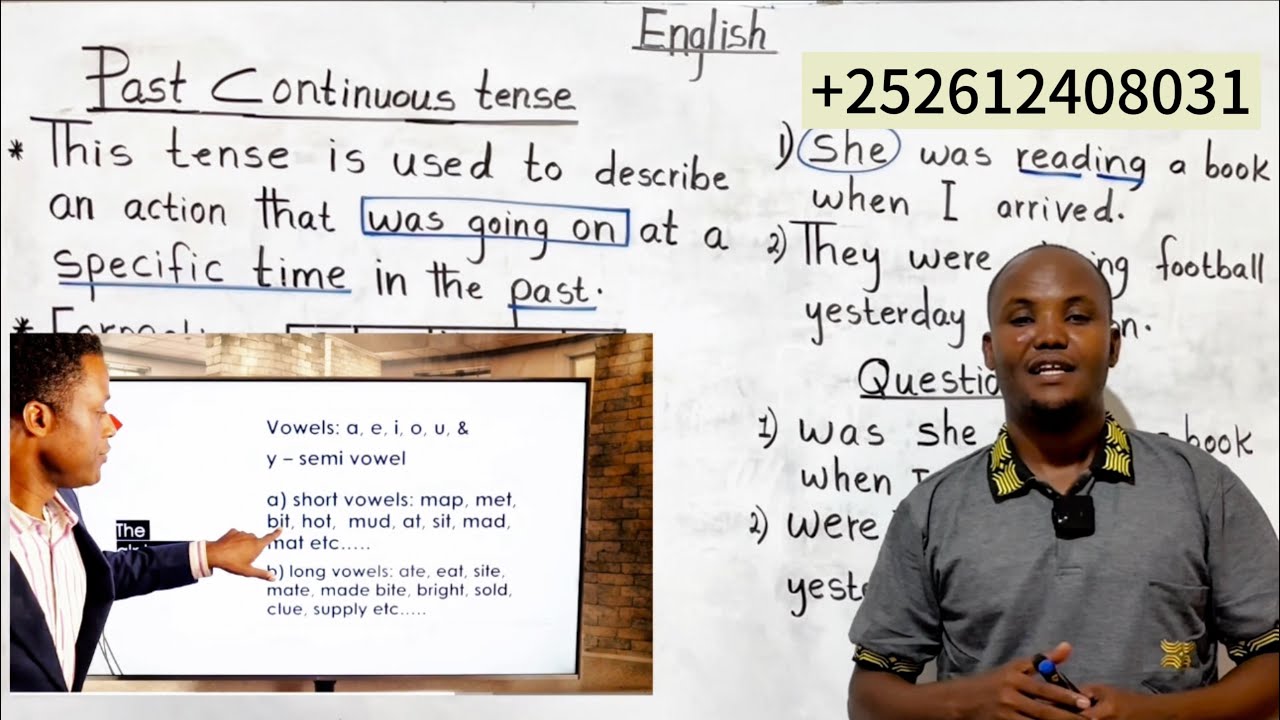 English
Past Continuous tense
* This tense is used to describe
an action that was going on at a
specific time in the past.
*
+252612408031
1) She was reading a book
when I arrived.
2) They were football
yesterday
1) was she book
when I
2) were
Vowels: a, e, i, o, u, &
y – semi vowel
a) short vowels: map, met,
bit, hot, mud, at, sit, mad,
mat etc.....
b) long vowels: ate, eat, site,
mate, made bite, bright, sold,
clue, supply etc.....
The